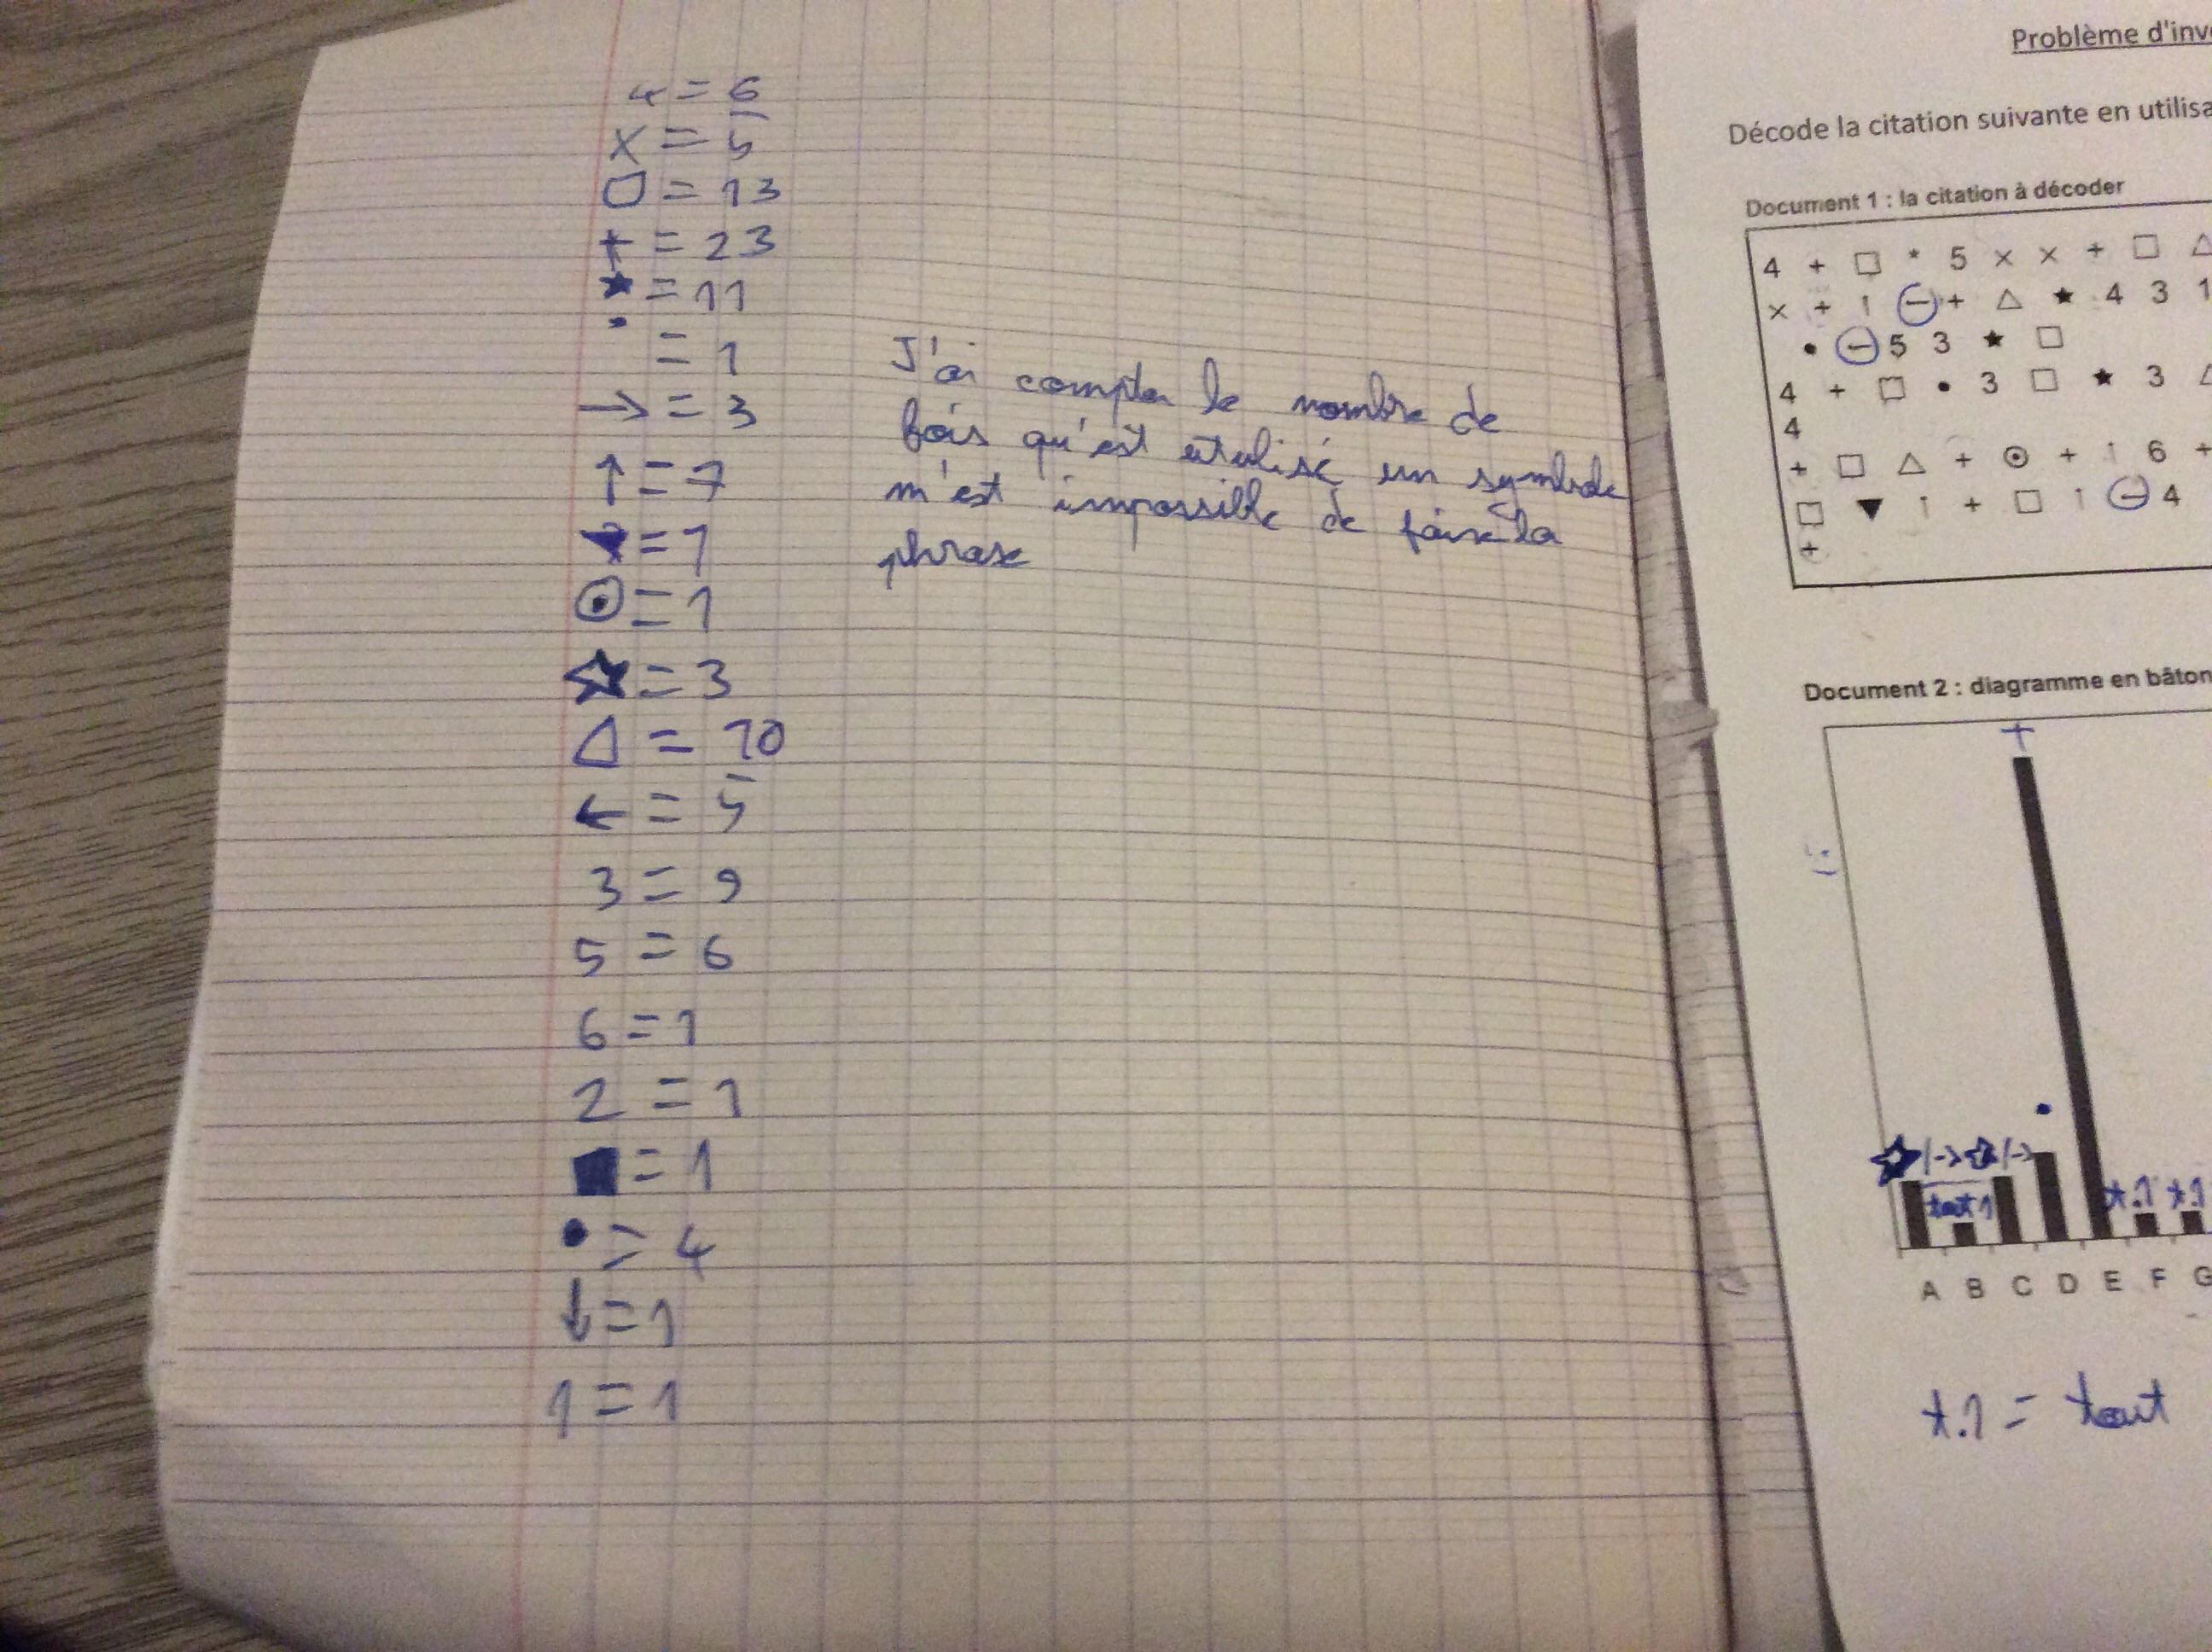 4 = 6
x = 5
□ = 13
+ = 23
★ = 11
• = 1
→ = 3
↑ = 7
▼ = 1
⊙ = 1
☆ = 3
△ = 10
← = 5
3 = 9
5 = 6
6 = 1
2 = 1
■ = 1
● = 4
↓ = 1
1 = 1
J'ai compter le nombre de
fois qu'est utulisé un symbole
m'est impossible de faire la
phrase
Problème d'inv
Décode la citation suivante en utilisa
Document 1 : la citation à décoder
4 + □ * 5 × × + □ △
× + ↑ ← + △ ★ 4 3 1
● ← 5 3 ★ □
4 + □ ● 3 □ ★ 3 △
4
+ □ △ + ⊙ + ↑ 6 +
□ ▼ ↑ + □ ↑ ← 4
+
Document 2 : diagramme en bâton
+
☆/→ ☆/→
tout 1
t.1 t.1
A B C D E F G
t.1 = tout